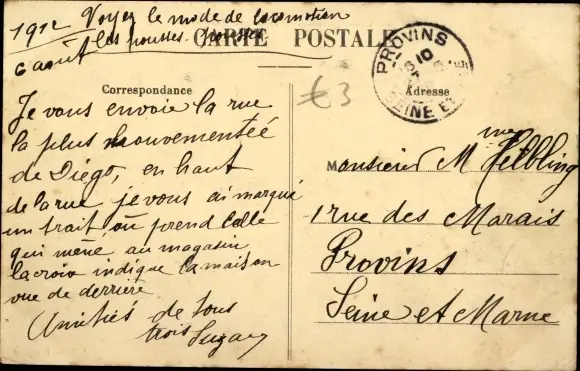 1912 Voyez le mode de locomotion
6 août les pousses-pousses
CARTE POSTALE
PROVINS
10
SEINE ET
€3
Correspondance
Adresse
Je vous envoie la rue
la plus mouvementée
de Diégo, en haut
de la rue je vous ai marqué
un trait où prend celle
qui mène au magasin
la croix indique la maison
vue de derrière
Amitiés de tous
trois Suzan
Monsieur M me Helbling
1 rue des Marais
Provins
Seine et Marne